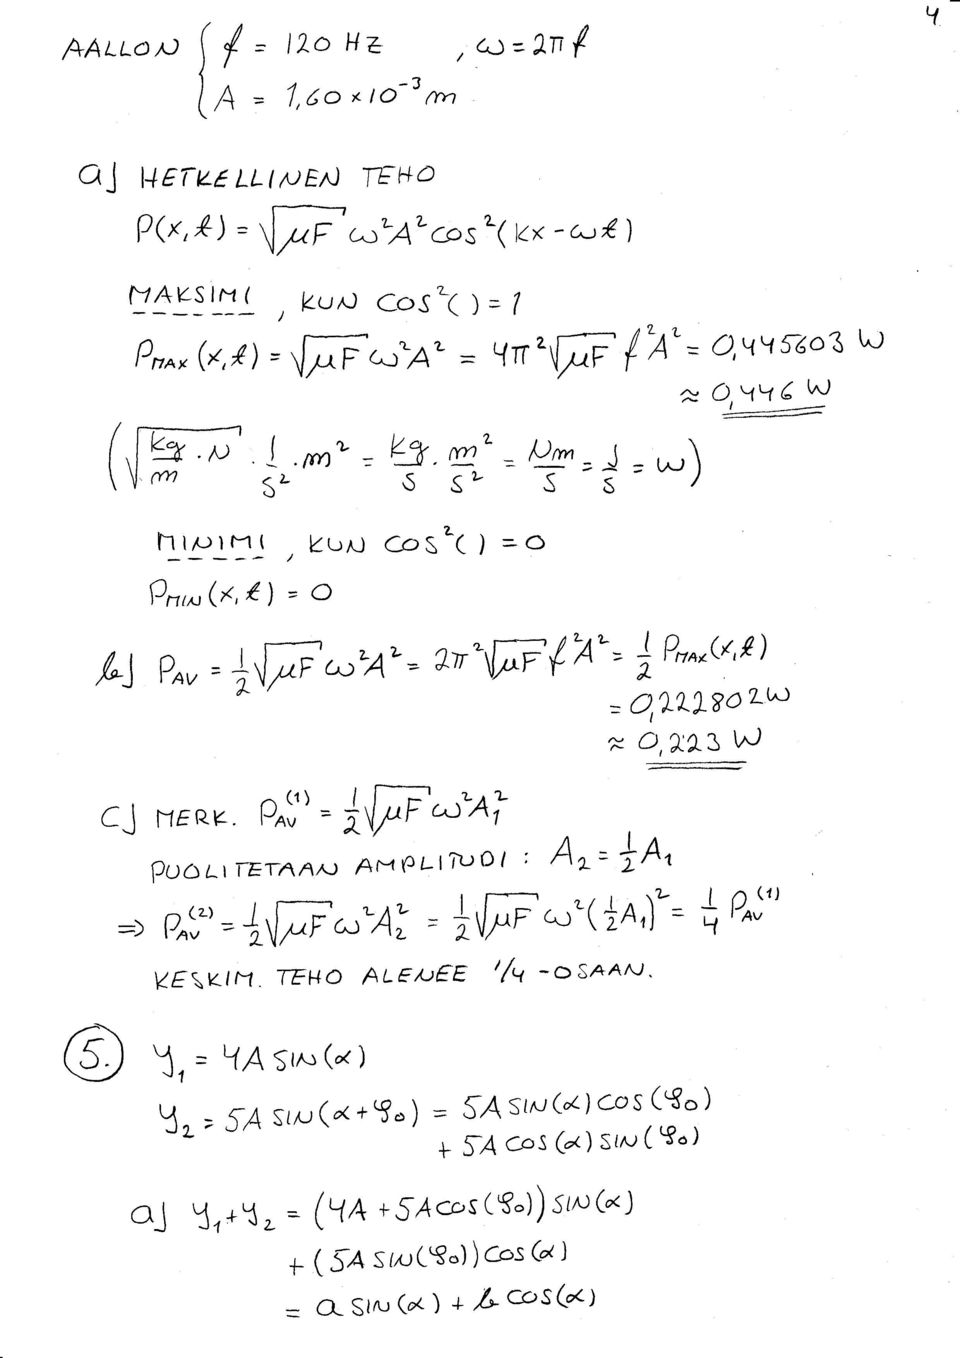 4
AALLON { f = 120 HZ , ω = 2πf
A = 1,60 × 10⁻³ m
a) HETKELLINEN TEHO
P(x,t) = √(μF) ω²A² cos²(kx - ωt)
MAKSIMI , KUN COS²( ) = 1
P_MAX (x,t) = √(μF) ω²A² = 4π²√(μF) f²A² = 0,445603 W
≈ 0,446 W
(√(kg/m · N) · 1/s² · m² = kg/s · m²/s² = Nm/s = J/s = W)
MINIMI , KUN COS²( ) = 0
P_MIN (x,t) = 0
b) P_AV = 1/2 √(μF) ω²A² = 2π²√(μF) f²A² = 1/2 P_MAX(x,t)
= 0,222802 W
≈ 0,223 W
c) MERK. P_AV^(1) = 1/2 √(μF) ω²A₁²
PUOLITETAAN AMPLITUDI : A₂ = 1/2 A₁
⇒ P_AV^(2) = 1/2 √(μF) ω²A₂² = 1/2 √(μF) ω²(1/2 A₁)² = 1/4 P_AV^(1)
KESKIM. TEHO ALENEE 1/4 -OSAAN.
5. y₁ = 4A SIN(α)
y₂ = 5A SIN(α+φ₀) = 5A SIN(α) COS(φ₀)
+ 5A COS(α) SIN(φ₀)
a) y₁+y₂ = (4A + 5A COS(φ₀)) SIN(α)
+ (5A SIN(φ₀)) COS(α)
= a SIN(α) + b COS(α)